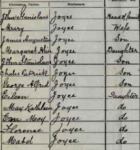 John Stanislaus Joyce Head of Family
Mary Joyce Wife
James Augustine Joyce Son
Margaret Alice Joyce Daughter
John Stanislaus Joyce Son
Charles Patrick Joyce Son
George Alfred Joyce Son
Eileen Joyce Daughter
Mary Kathleen Joyce do
Eva Mary Joyce do
Florence Joyce do
Mabel Joyce do